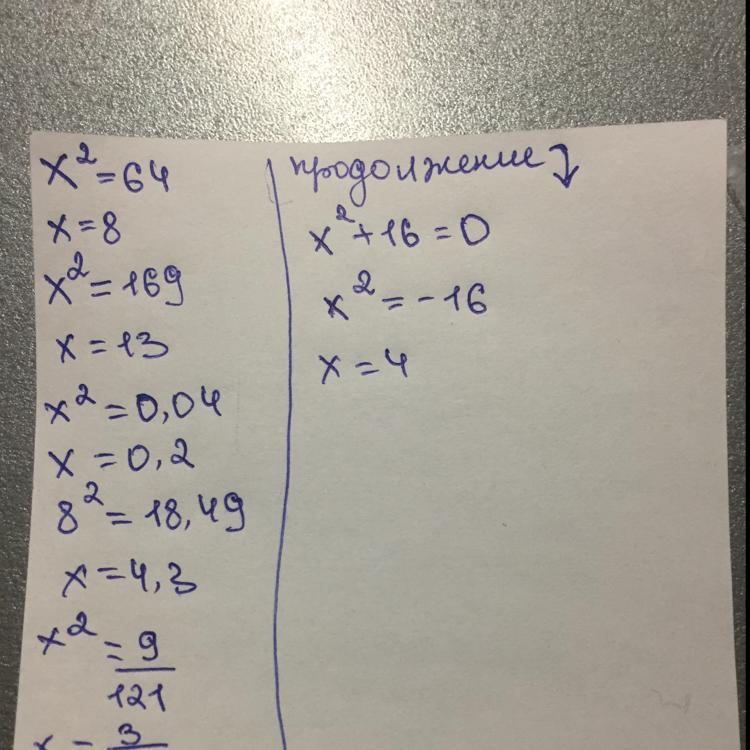 x² = 64
x = 8
x² = 169
x = 13
x² = 0,04
x = 0,2
8² = 18,49
x = 4,3
x² = 9/121
x = 3
продолжение ↓
x² + 16 = 0
x² = -16
x = 4